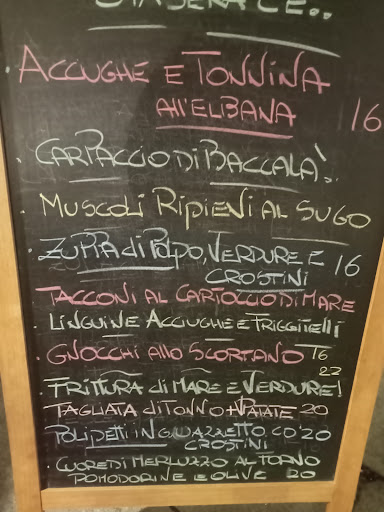 STASERA C'È..
· ACCIUGHE E TONNINA
All'ELBANA 16
· CARPACCIO DI BACCALÀ
· MUSCOLI RIPIENI AL SUGO
· ZUPPA di POLPO, VERDURE E
CROSTINI 16
TACCONI AL CARTOCCIO DI MARE
· LINGUINE ACCIUGHE E FRIGGITELLI
· GNOCCHI Allo SCORFANO 16
22
· FRITTURA di MARE E VERDURE!
TAGLIATA di TONNO + PATATE 20
· POLIPETTI IN GUAZZETTO CO' 20
CROSTINI
· CUORE DI MERLUZZO AL FORNO
POMODORINI E OLIVE 20